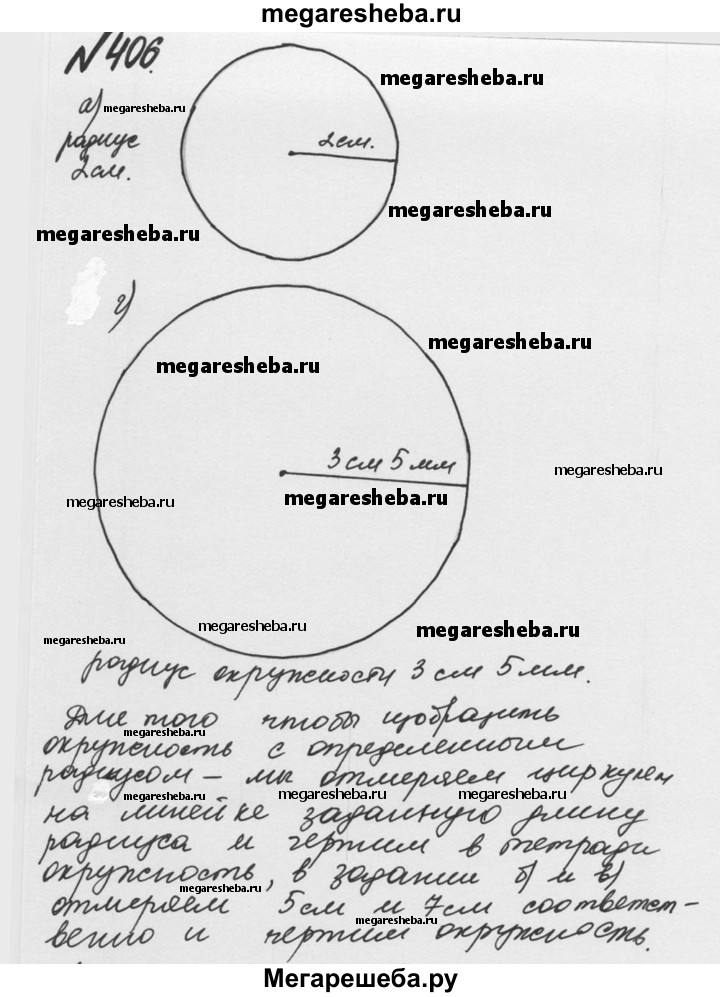 megaresheba.ru
№406.
megaresheba.ru
а) megaresheba.ru
радиус
2см.
2см.
megaresheba.ru
megaresheba.ru
г)
megaresheba.ru
megaresheba.ru
3 см 5 мм
megaresheba.ru
megaresheba.ru
megaresheba.ru
megaresheba.ru
megaresheba.ru
megaresheba.ru
радиус окружности 3 см 5 мм.
Для того чтобы изобразить
megaresheba.ru
окружность с определенным
радиусом – мы отмеряем циркулем
megaresheba.ru megaresheba.ru megaresheba.ru
на линейке заданную длину
радиуса и чертим в тетради
окружность, в задании б) и в)
megaresheba.ru
отмеряем 5см и 7см соответст-
венно и чертим окружность.
megaresheba.ru
Мегарешеба.ру